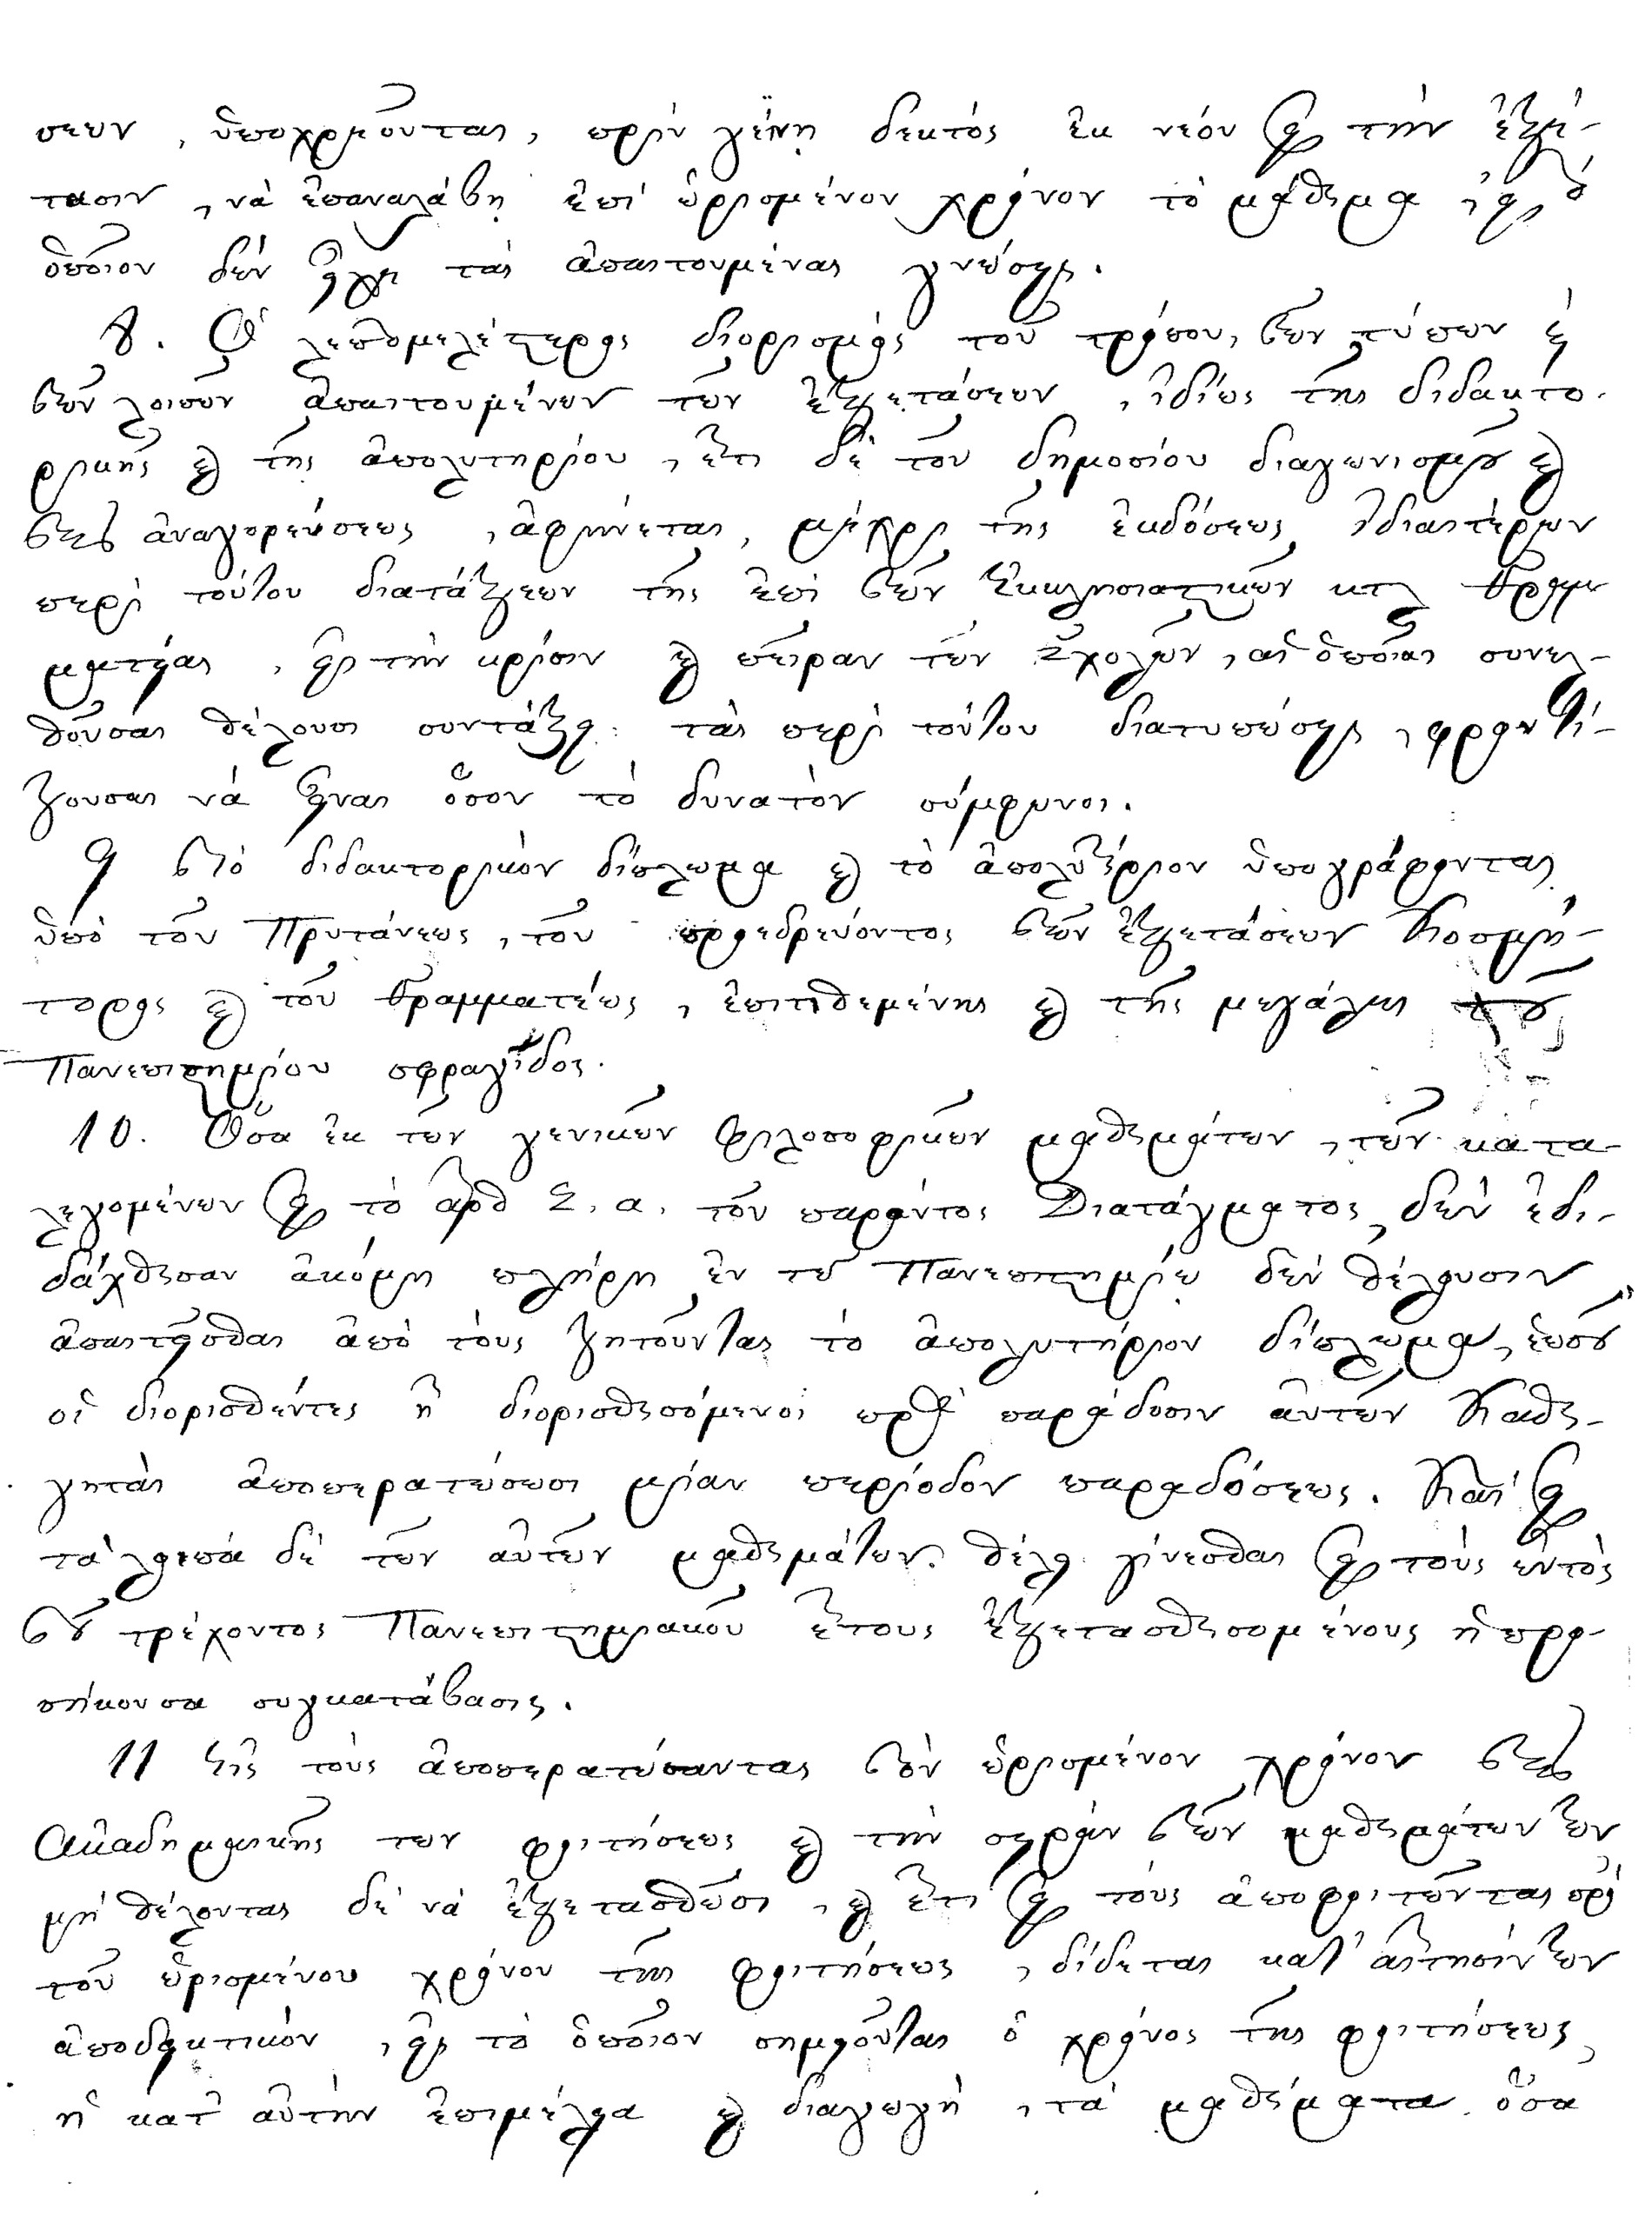 σεων, ὑποχρεοῦται, πρὶν γένῃ δεκτὸς ἐκ νέου εἰς τὴν ἐξέ-
τασιν, νὰ ἐπαναλάβῃ ἐπὶ ὡρισμένον χρόνον τὸ μάθημα, εἰς τὸ
ὁποῖον δὲν ἔχει τὰς ἀπαιτουμένας γνώσεις.
8. Ὁ λεπτομερέστερος διορισμὸς τοῦ τρόπου, τῶν τύπων καὶ
τῶν λοιπῶν ἀπαιτουμένων τῶν ἐξετάσεων, ἰδίως τῆς διδακτο-
ρικῆς καὶ τῆς ἀπολυτηρίου, ἔτι δὲ τοῦ δημοσίου διαγωνισμοῦ καὶ
τῆς ἀναγορεύσεως, ἀφίνεται, μέχρι τῆς ἐκδόσεως ἰδιαιτέρων
περὶ τούτου διατάξεων τῆς ἐπὶ τῶν Ἐκκλησιαστικῶν κτλ Γραμ
ματείας, εἰς τὴν κρίσιν καὶ πεῖραν τῶν Σχολῶν, αἱ ὁποῖαι συνελ-
θοῦσαι θέλουσι συντάξει τὰς περὶ τούτου διατυπώσεις, φροντί-
ζουσαι νὰ ἦναι ὅσον τὸ δυνατὸν σύμφωνοι.
9 Τὸ διδακτορικὸν δίπλωμα καὶ τὸ ἀπολυτήριον ὑπογράφονται
ὑπὸ τοῦ Πρυτάνεως, τοῦ προεδρεύοντος τῶν ἐξετάσεων Κοσμή-
τορος καὶ τοῦ Γραμματέως, ἐπιτιθεμένης καὶ τῆς μεγάλης τοῦ
Πανεπιστημίου σφραγῖδος.
10. Ὅσα ἐκ τῶν γενικῶν φιλοσοφικῶν μαθημάτων, τῶν κατα-
λεγομένων εἰς τὸ ἀρθ 2. α. τοῦ παρόντος Διατάγματος, δὲν ἐδι-
δάχθησαν ἀκόμη πλήρη ἐν τῷ Πανεπιστημίῳ δὲν θέλουσιν
ἀπαιτεῖσθαι ἀπὸ τοὺς ζητοῦντας τὸ ἀπολυτήριον δίπλωμα, ἑωσοῦ
οἱ διορισθέντες ἢ διορισθησόμενοι πρὸς παράδοσιν αὐτῶν Καθη-
γηταὶ ἀποπερατώσωσι μίαν περίοδον παραδόσεως. Καὶ εἰς
τὰ λοιπὰ δὲ τῶν αὐτῶν μαθημάτων θέλει γίνεσθαι εἰς τοὺς ἐντὸς
τοῦ τρέχοντος Πανεπιστημιακοῦ ἔτους ἐξετασθησομένους ἡ προ-
σήκουσα συγκατάβασις.
11 Εἰς τοὺς ἀποπερατώσαντας τὸν ὡρισμένον χρόνον τῆς
Ἀκαδημαικῆς των φοιτήσεως καὶ τὴν σειρὰν τῶν μαθημάτων των
μὴ θέλοντας δὲ νὰ ἐξετασθῶσι, καὶ ἔτι εἰς τοὺς ἀποφοιτῶντας πρὸ
τοῦ ὡρισμένου χρόνου τῆς φοιτήσεως, δίδεται κατ' αἴτησίν των
ἀποδεικτικὸν, εἰς τὸ ὁποῖον σημειοῦται ὁ χρόνος τῆς φοιτήσεως,
ἡ κατ' αὐτὴν ἐπιμέλεια καὶ διαγωγὴ, τὰ μαθήματα ὅσα